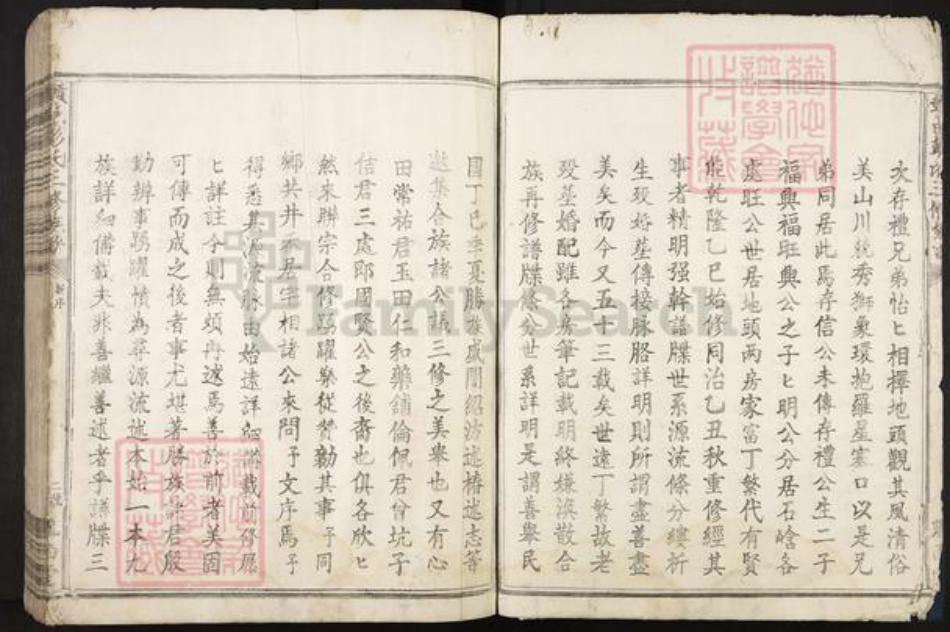 次存禮兄弟怡匕相擇地頭觀其風清俗
美山川毓秀獅象環抱羅星塞口以是兄
弟同居此焉存信公未傳存禮公生二子
福興福旺興公之子匕明公分居石峆各
處旺公世居地頭两房家富丁繁代有賢
能乾隆乙巳始修同治乙丑秋重修經其
事者精明强幹譜牒世系源流條分縷析
生殁婚塟傳接脉胳詳明則所謂盡善盡
美矣而今又五十三載矣世遠丁繁故老
殁塟婚配雖各房筆記載明終嫌渙散合
族再修譜牒條分世系詳明是謂善舉民
國丁巳季夏勝族咸開紹汸述椿述志等
邀集合族諸公議三修之美舉也又有心
田常祐君玉田仁和藥舖倫佩君曾坑子
信君三處郎周賢公之後裔也俱各欣匕
然來聯宗合修踴躍樂從贊勷其事予同
鄉共井居宅相諸公來問予文序焉予
得悉其源流脉由始遠詳細講載前修愿
匕詳註今則無煩冉述焉善於前者美固
可傳而成之後者事尤堪著勝族辭君殷
勤辨事踴躍憤為尋源流述本始一本九
族詳細備載夫非善繼善述者乎譜牒三
FamilySearch